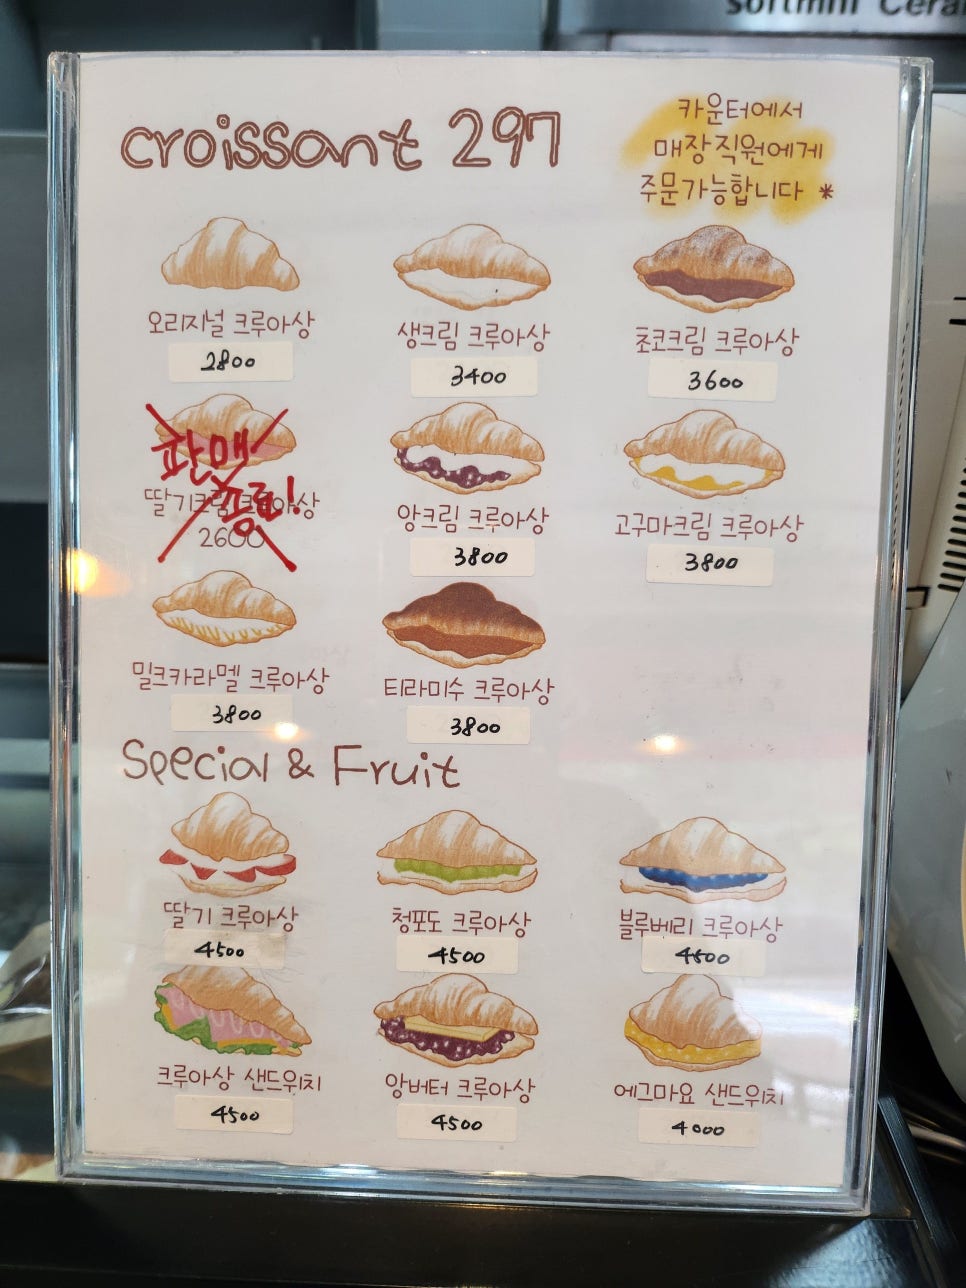 softmini Cera
croissant 297
카운터에서
매장직원에게
주문가능합니다 *
오리지널 크루아상
2800
생크림 크루아상
3400
초코크림 크루아상
3600
판매
중지!
딸기크림 크루아상
2600
앙크림 크루아상
3800
고구마크림 크루아상
3800
밀크카라멜 크루아상
3800
티라미수 크루아상
3800
Special & Fruit
딸기 크루아상
4500
청포도 크루아상
4500
블루베리 크루아상
4500
크루아상 샌드위치
4500
앙버터 크루아상
4500
에그마요 샌드위치
4000